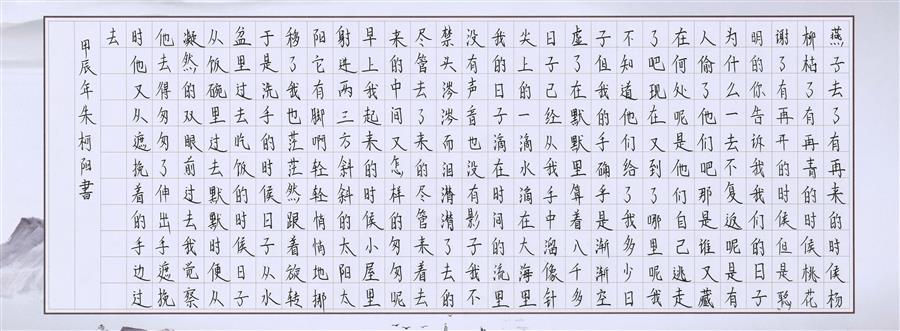 燕子去了有再来的时候杨
柳枯了有再青的时候桃花
谢了有再开的时候但是聪
明的你告诉我我们的日子
为什么一去不复返呢是有
人偷了他们吧那是谁又藏
在何处呢是他们自己逃走
了吧现在又到了哪里呢我
不知道他们给了我多少日
子但我的手确乎是渐渐空
虚了在默默里算着八千多
日子已经从我手中溜像针
尖上的一滴水滴在大海里
我的日子滴在时间的流里
没有声音也没有影子我不
禁头涔涔而泪潸潸了去的
尽管去了来的尽管来着去
来的中间又怎样的匆匆呢
早上我起来的时候小屋里
射进两三方斜斜的太阳太
阳它有脚啊轻轻悄悄地挪
移了我也茫茫然跟着旋转
于是洗手的时候日子从水
盆里过去吃饭的时候日子
从饭碗里过去默默时便从
凝然的双眼前过去我觉察
他去得匆匆了伸出手遮挽
时他又从遮挽着的手边过
去
甲辰年朱柯阳書